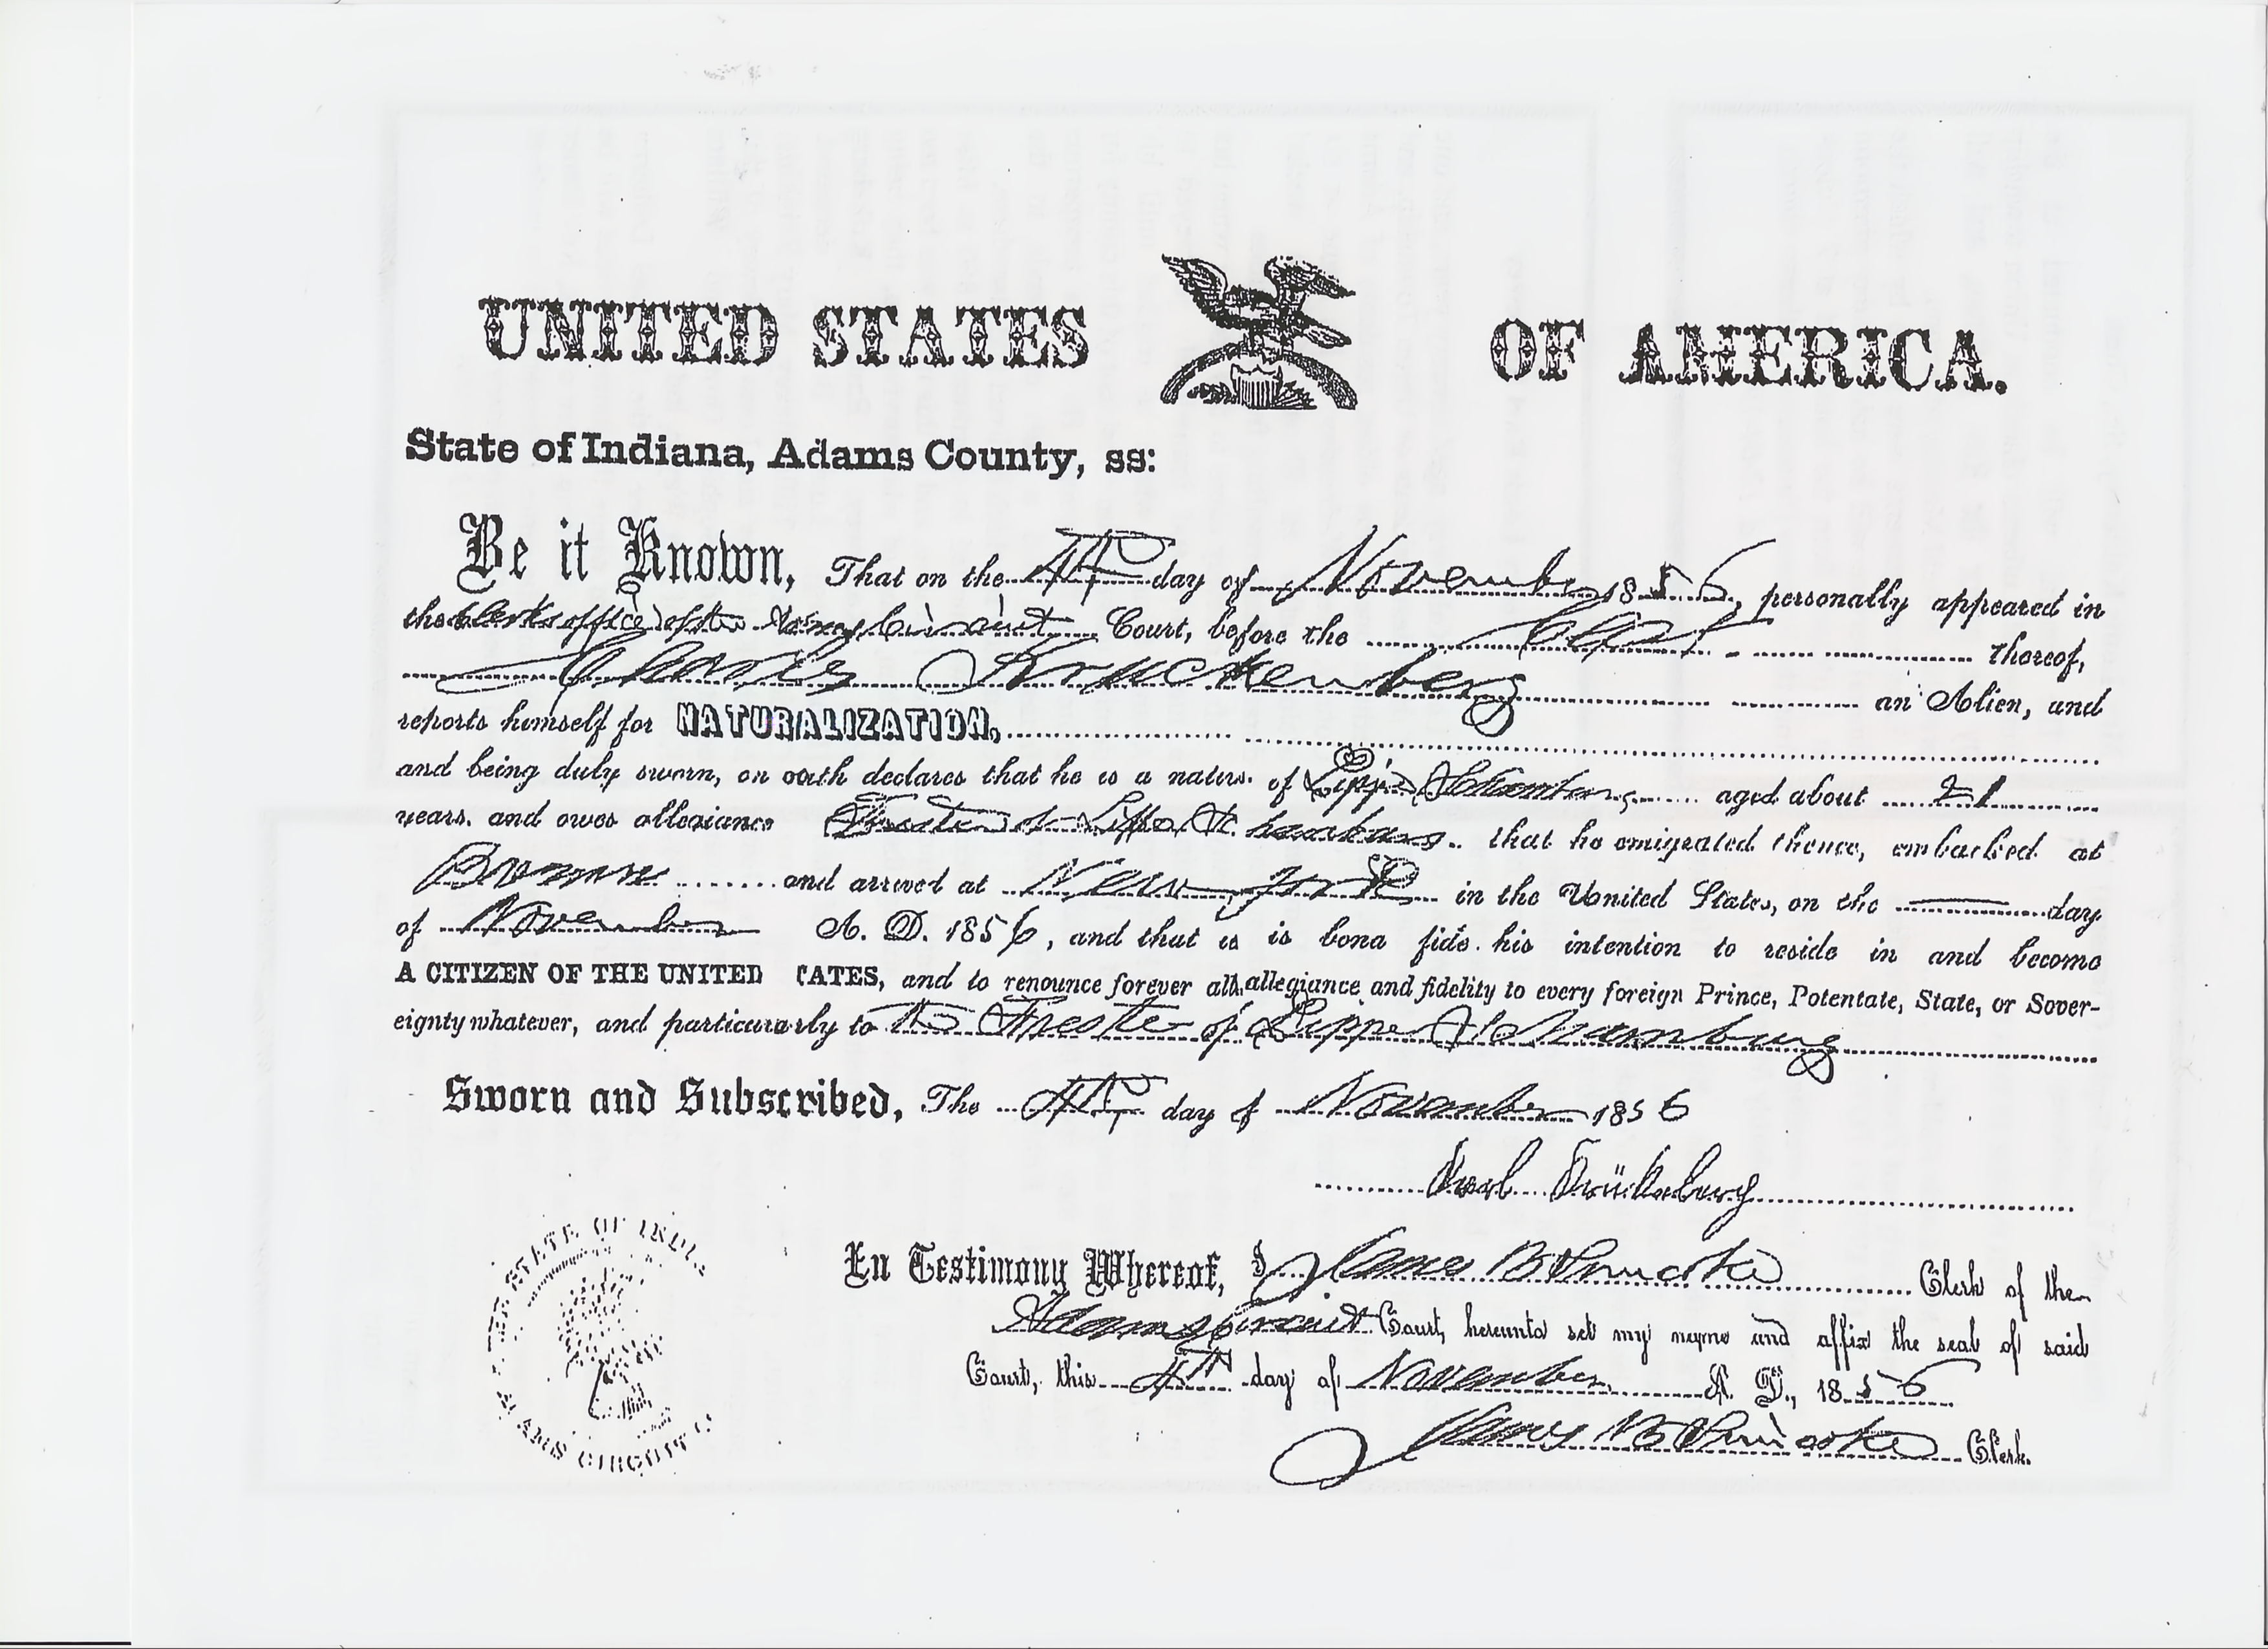 UNITED STATES OF AMERICA.
State of Indiana, Adams County, ss:
Be it Known, That on the 4th day of November 1856, personally appeared in
the Clerks office of the Circuit Court, before the Clerk thereof,
Charles Kruckenberg an Alien, and
reports himself for NATURALIZATION,
and being duly sworn, on oath declares that he is a native of Lippe Schaumburg aged about 21
years, and owes allegiance Furste of Lippe Schaumburg that he emigrated thence, embarked at
Bremen and arrived at New York in the United States, on the day
of November A. D. 1856, and that is is bona fide his intention to reside in and become
A CITIZEN OF THE UNITED TATES, and to renounce forever all allegiance and fidelity to every foreign Prince, Potentate, State, or Sover-
eignty whatever, and particularly to the Furste of Lippe Schaumburg
Sworn and Subscribed, The 4th day of November 1856
Karl Krückeberg
In Testimony Whereof, I James B Simcoke Clerk of the
Adams Circuit Court, hereunto set my name and affix the seal of said
Court, this 4th day of November A. D., 1856
James B Simcoke Clerk.
STATE OF INDI
AMS CIRCUIT C